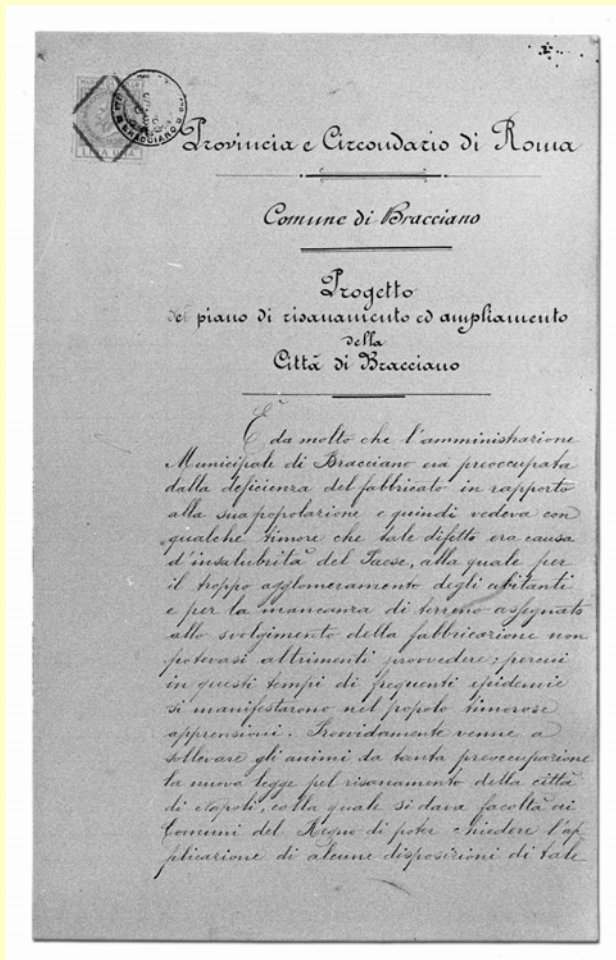 LIRA UNA
BRACCIANO
Provincia e Circondario di Roma
Comune di Bracciano
Progetto
del piano di risanamento ed ampliamento
della
Città di Bracciano
È da molto che l'amministrazione
Municipale di Bracciano era preoccupata
dalla deficienza del fabbricato in rapporto
alla sua popolazione e quindi vedeva con
qualche timore che tale difetto era causa
d'insalubrità del Paese, alla quale per
il troppo agglomeramento degli abitanti
e per la mancanza di terreno assegnato
allo svolgimento della fabbricazione non
potevasi altrimenti provvedere; percui
in questi tempi di frequenti epidemie
si manifestarono nel popolo timorose
apprensioni. Provvidamente venne a
sollevare gli animi da tanta preoccupazione
la nuova legge pel risanamento della città
di Napoli, colla quale si dava facoltà ai
Comuni del Regno di poter chiedere l'ap
plicazione di alcune disposizioni di tale